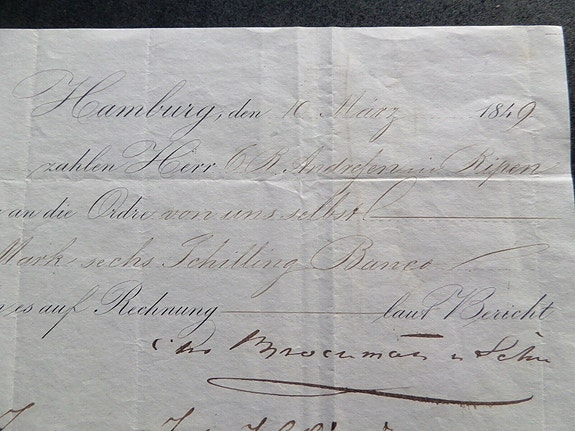 Hamburg, den 10 März 1849
zahlen Herr C R Andresen in Ripen
an die Ordre von uns selbst
Mark sechs Schilling Banco
es auf Rechnung laut Bericht